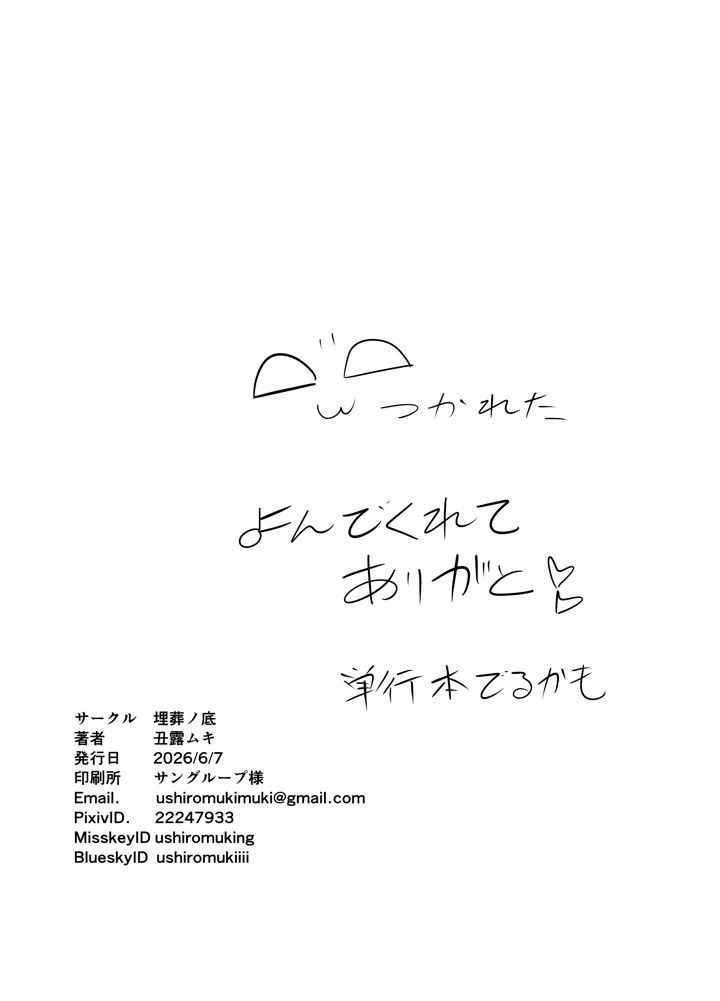 つかれた
よんでくれて
ありがと
単行本でるかも
サークル 埋葬ノ底
著者 丑露ムキ
発行日 2026/6/7
印刷所 サングループ様
Email. ushiromukimuki@gmail.com
PixivID. 22247933
MisskeyID ushiromuking
BlueskyID ushiromukiiii